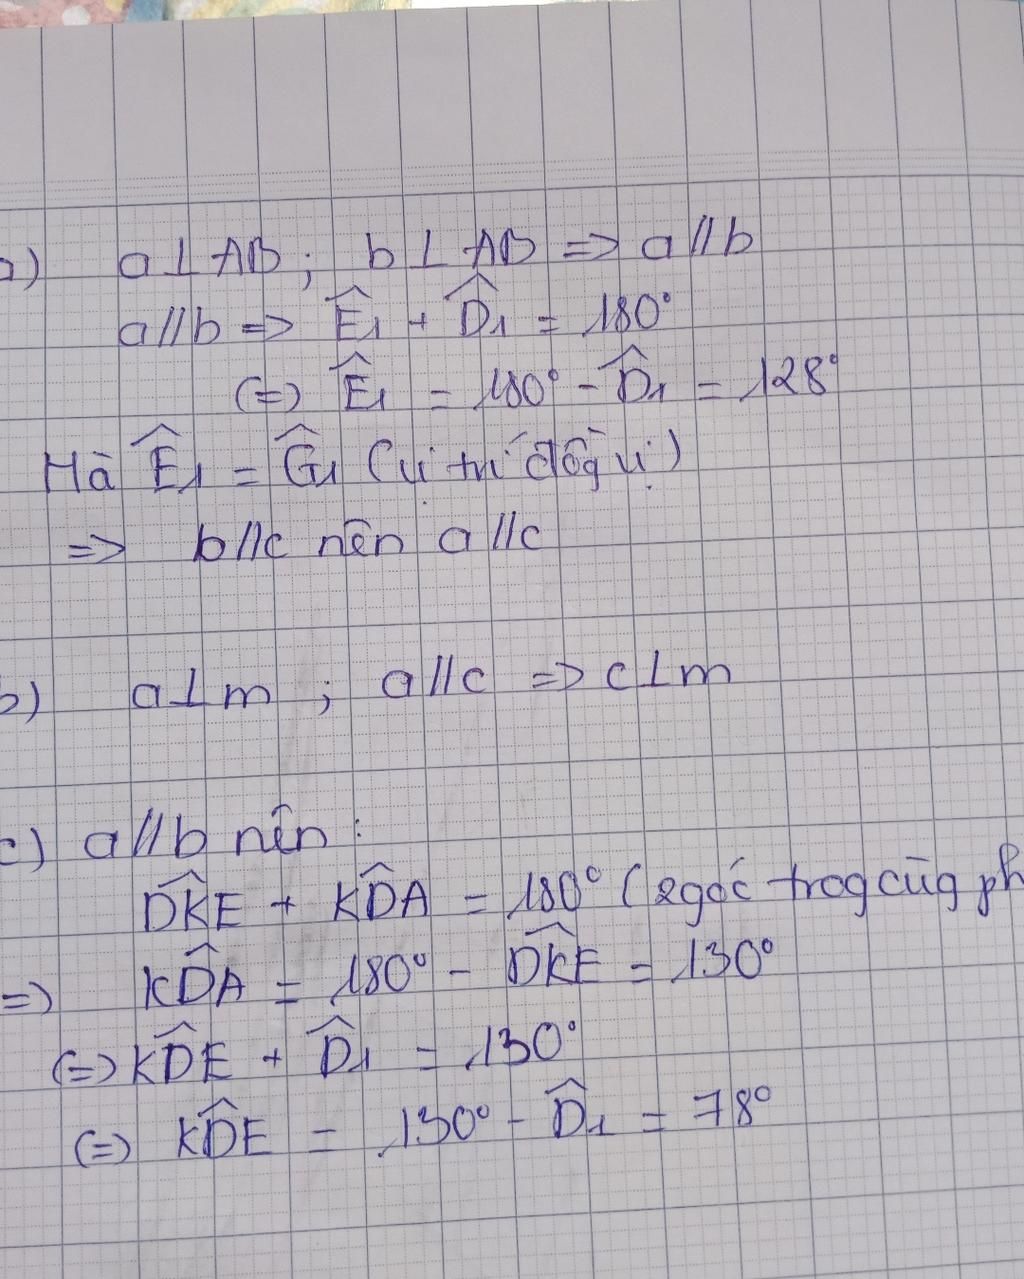 a) a⊥AB ; b⊥AB => a//b
a//b => Ê₁ + D̂₁ = 180°
(=) Ê₁ = 180° - D̂₁ = 128°
Mà Ê₁ = Ĝ₁ (vị trí đồg vị)
=> b//c nên a//c
b) a⊥m ; a//c => c⊥m
c) a//b nên :
DK̂E + KD̂A = 180° (2góc trog cùg ph
=) KD̂A = 180° - DK̂E = 130°
(=) KD̂E + D̂₁ = 130°
(=) KD̂E = 130° - D̂₁ = 78°